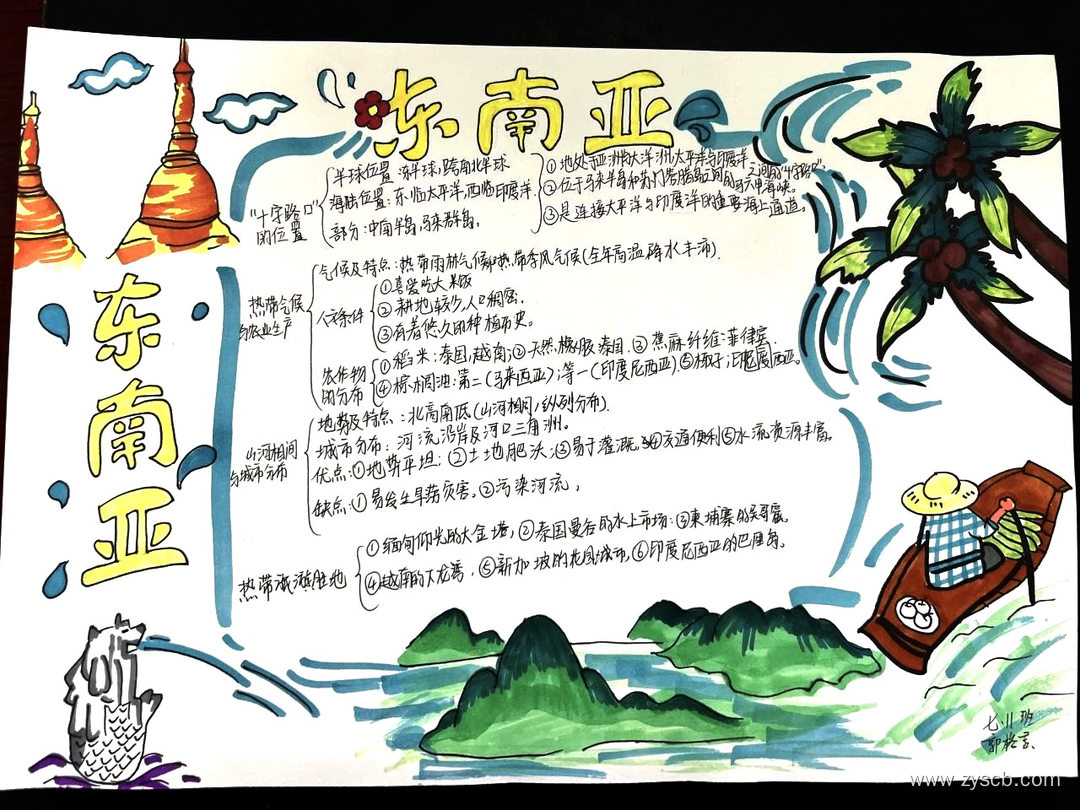 东南亚
东南亚
"十字路口"
的位置
半球位置:东半球,跨南北半球
海陆位置:东临太平洋,西临印度洋.
部分:中南半岛,马来群岛,
①地处亚洲与大洋洲,太平洋与印度洋之间的"十字路口"
②位于马来半岛和苏门答腊岛之间的马六甲海峡。
③是连接太平洋与印度洋的重要海上通道,
热带气候
与农业生产
气候及特点:热带雨林气候和热带季风气候(全年高温降水丰沛).
人文条件
①喜爱吃大米饭
②耕地较少,人口稠密.
③有着悠久的种植历史。
农作物
的分布
①稻米:泰国,越南;②天然橡胶:泰国.③蕉麻纤维:菲律宾.
④棕榈油:第二(马来西亚);第一(印度尼西亚)⑤椰子;印度尼西亚。
山河相间
与城市分布
地势及特点:北高南低(山河相间,纵列分布).
城市分布:河流沿岸及河口三角洲。
优点:①地势平坦;②土地肥沃;③易于灌溉,④交通便利⑤水流资源丰富。
缺点:①易发生旱涝灾害。②污染河流,
热带旅游胜地
①缅甸仰光的大金塔,②泰国曼谷的水上市场:③柬埔寨的吴哥窟。
④越南的下龙湾,⑤新加坡的花园城市,⑥印度尼西亚的巴厘岛。
七.11班
www.zyscb.com